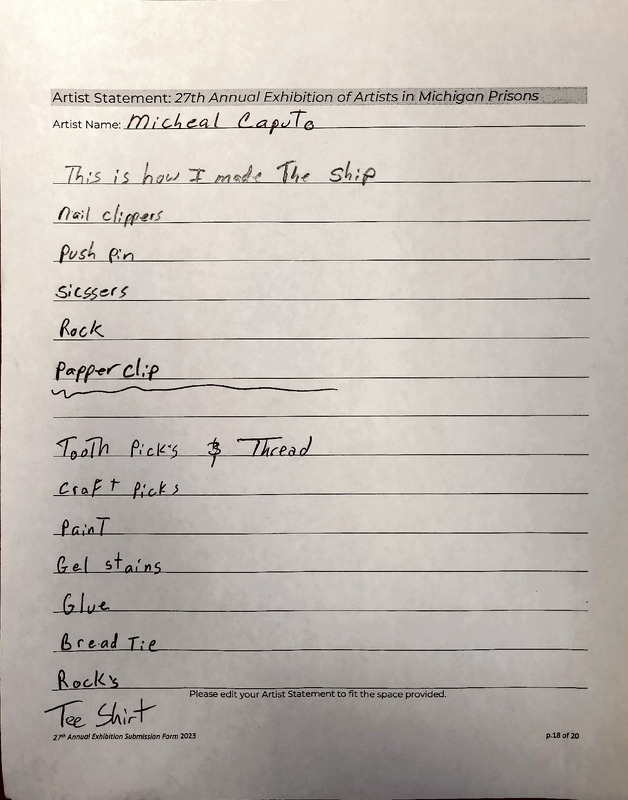 Artist Statement: 27th Annual Exhibition of Artists in Michigan Prisons
Artist Name: Micheal Caputo
This is how I made The Ship
Nail clippers
Push pin
Sicssers
Rock
Papper clip
Tooth Pick's $ Thread
Craft picks
Paint
Gel stains
Glue
Bread Tie
Rock's
Please edit your Artist Statement to fit the space provided.
Tee Shirt
27th Annual Exhibition Submission Form 2023 p.18 of 20